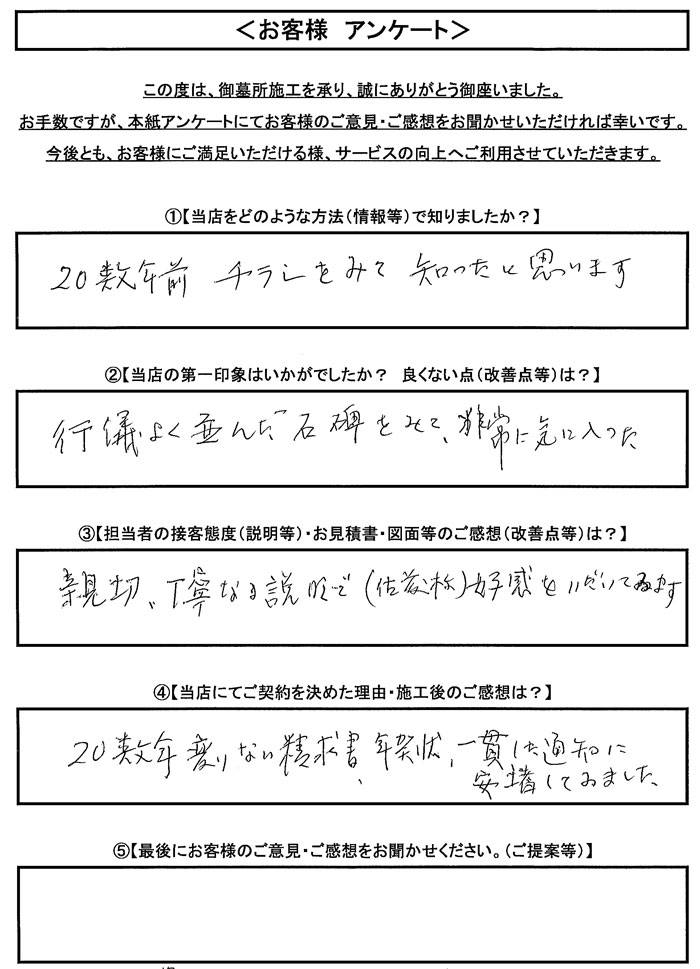 ＜お客様 アンケート＞
この度は、御墓所施工を承り、誠にありがとう御座いました。
お手数ですが、本紙アンケートにてお客様のご意見・ご感想をお聞かせいただければ幸いです。
今後とも、お客様にご満足いただける様、サービスの向上へご利用させていただきます。
①【当店をどのような方法（情報等）で知りましたか？】
20数年前 チラシをみて 知ったと思います
②【当店の第一印象はいかがでしたか？ 良くない点（改善点等）は？】
行儀よく並んだ石碑をみて、非常に気に入った
③【担当者の接客態度（説明等）・お見積書・図面等のご感想（改善点等）は？】
親切、丁寧なる説明で（佐藤様）好感をいだいてゐます
④【当店にてご契約を決めた理由・施工後のご感想は？】
20数年変りない請求書、年賀状、一貫した通知に
安堵してゐました、
⑤【最後にお客様のご意見・ご感想をお聞かせください。（ご提案等）】